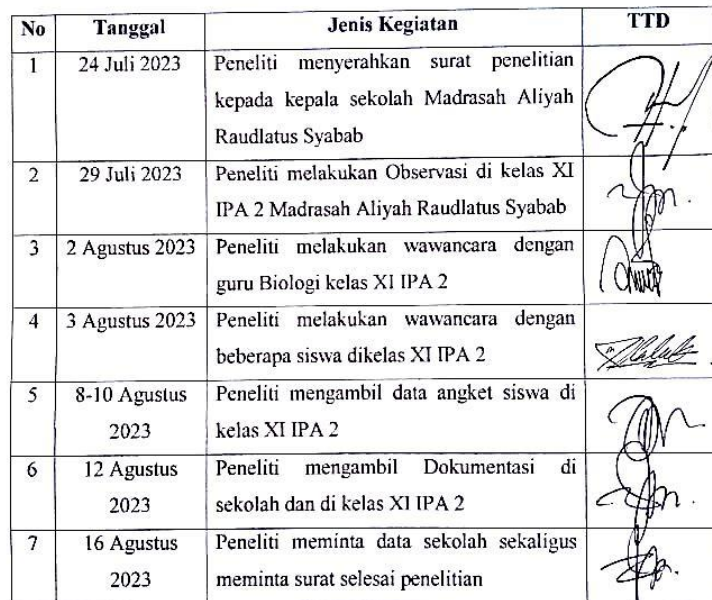 No Tanggal Jenis Kegiatan TTD
1 24 Juli 2023 Peneliti menyerahkan surat penelitian
kepada kepala sekolah Madrasah Aliyah
Raudlatus Syabab
2 29 Juli 2023 Peneliti melakukan Observasi di kelas XI
IPA 2 Madrasah Aliyah Raudlatus Syabab
3 2 Agustus 2023 Peneliti melakukan wawancara dengan
guru Biologi kelas XI IPA 2
4 3 Agustus 2023 Peneliti melakukan wawancara dengan
beberapa siswa dikelas XI IPA 2
5 8-10 Agustus Peneliti mengambil data angket siswa di
2023 kelas XI IPA 2
6 12 Agustus Peneliti mengambil Dokumentasi di
2023 sekolah dan di kelas XI IPA 2
7 16 Agustus Peneliti meminta data sekolah sekaligus
2023 meminta surat selesai penelitian